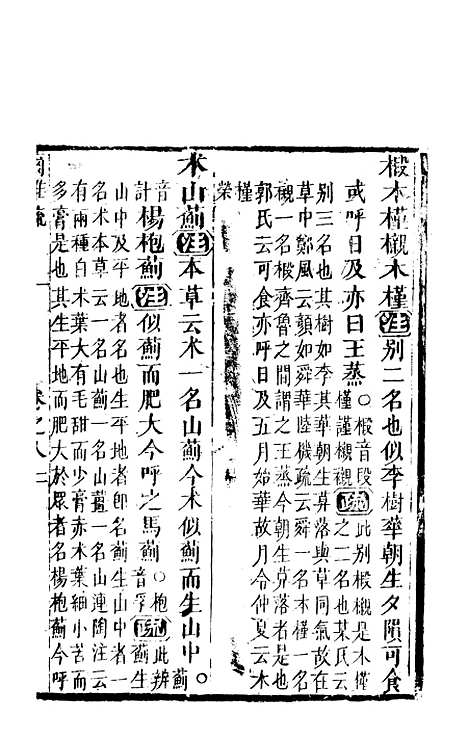 椴木槿櫬木槿注别二名也似李樹華朝生夕隕可食
或呼日及亦曰王蒸○椴音段槿謹櫬觀疏此别椴櫬是木槿之二名也某氏云
别三名也其樹如李其華朝生莫落與草同氣故在
草中鄭風云顔如舜華陸機疏云舜一名木槿一名
櫬一名椴齊魯之間謂之王蒸今朝生莫落者是也
郭氏云可食亦呼日及五月始華故月令仲夏云木
槿榮
术山薊注本草云术一名山薊今术似薊而生山中○薊
音計楊枹薊注似薊而肥大今呼之馬薊○枹音孚疏此辨薊生
山中及平地者名也生平地者即名薊生山中者一
名术本草云一名山薊一名山薑一名山連陶注云
有兩種白术葉大有毛甜而少膏赤术葉細小苦而
多膏是也其生平地而肥大於眾者名楊枹薊今呼
爾雅疏 卷之八